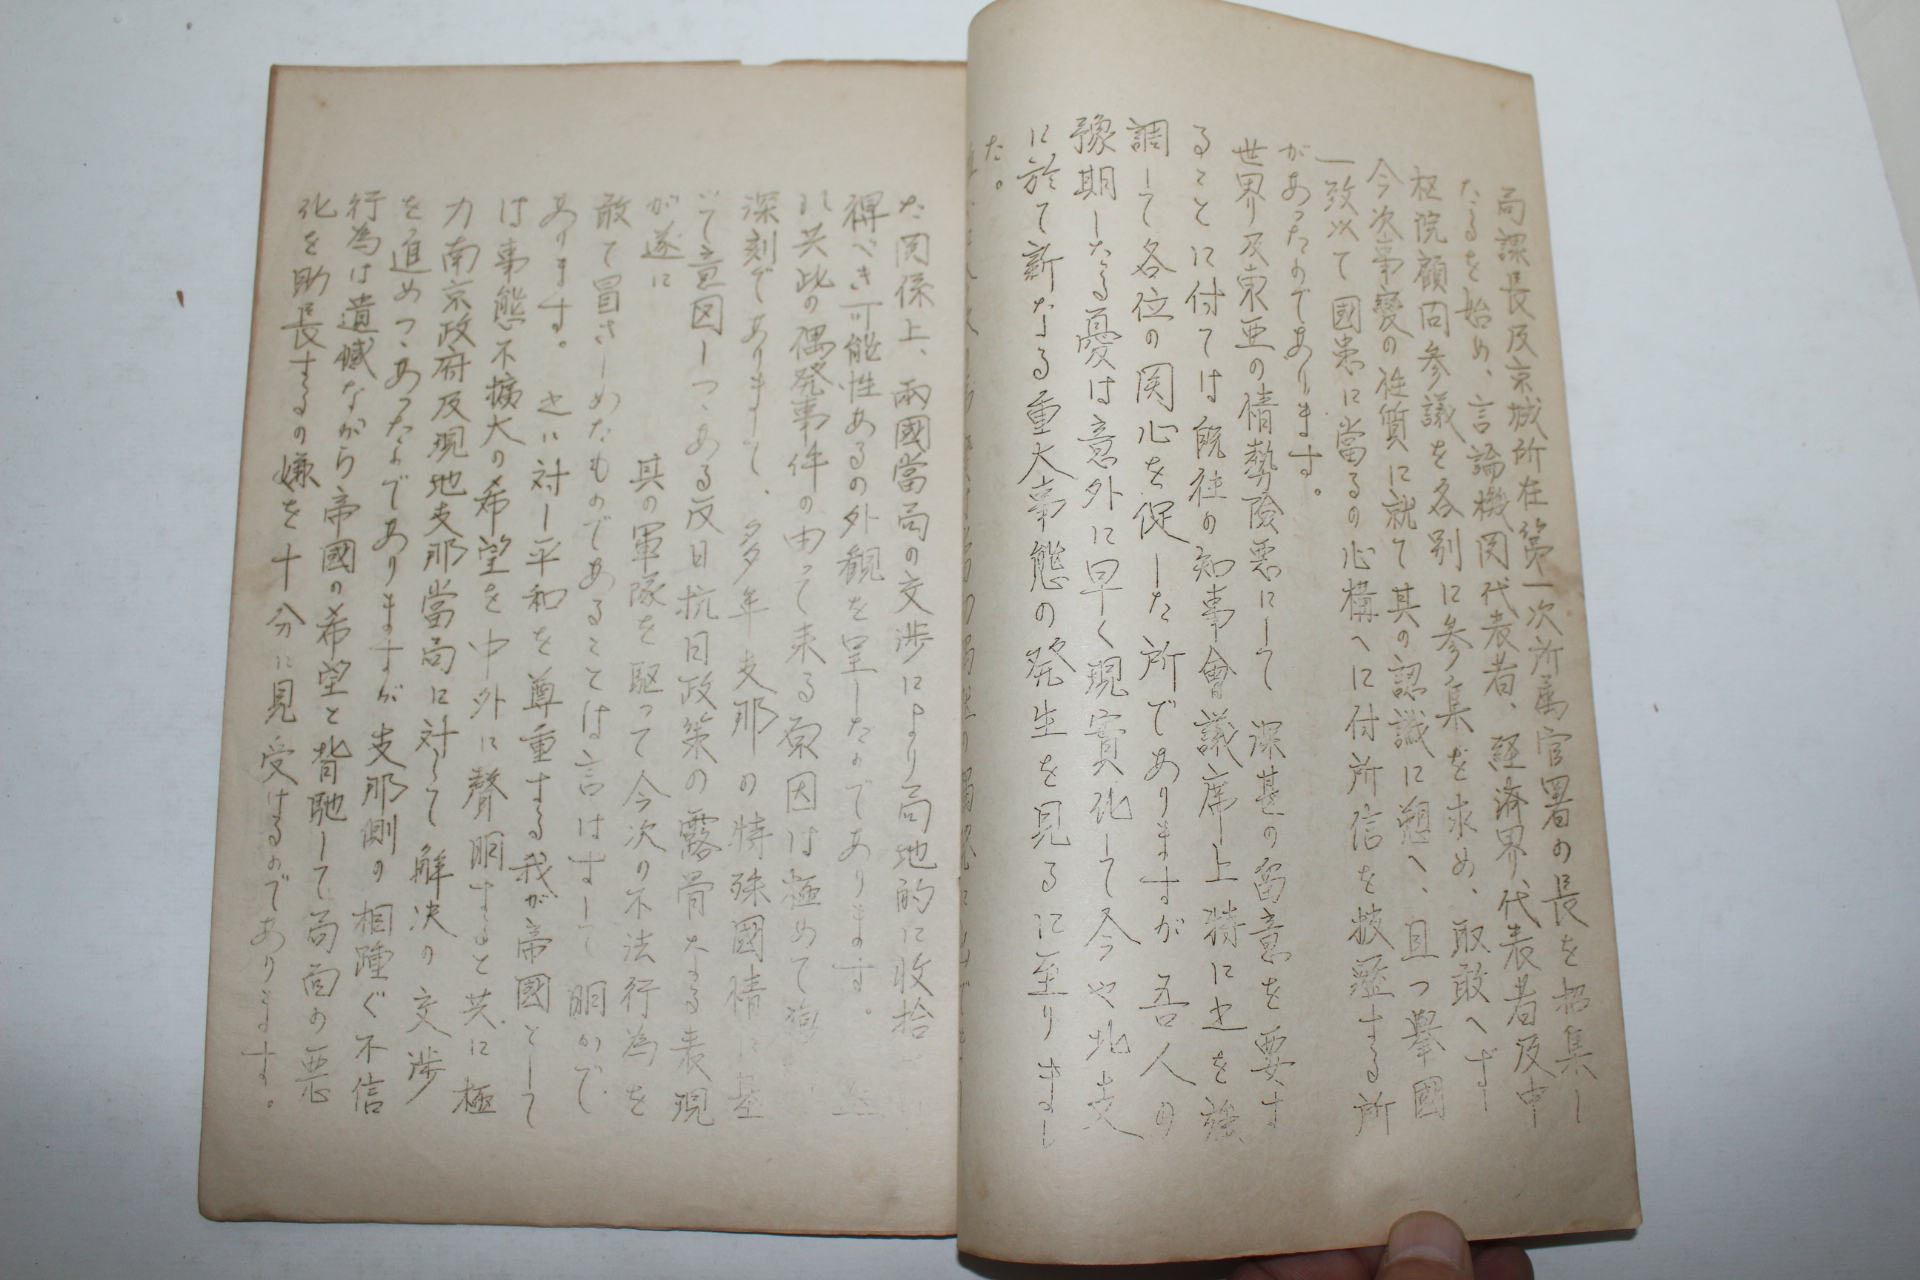 局課長及京城所在第一次所属官署の長を招集し
たるを始め、言論機関代表者、経済界代表者及中
枢院顧問参議を各別に参集を求め、取敢へず
今次事變の性質に就て其の認識に愬へ、且つ擧國
一致以て國患に當るの心構へに付所信を披瀝する所
があったのであります。
世界及東亜の情勢險悪にして 深甚の留意を要す
ることに付ては既往の知事會議席上特に之を強
調して各位の関心を促した所でありますが吾人の
豫期したる憂は意外に早く現實化して今や北支
に於て新なる重大事態の発生を見るに至りまし
た。
た関係上、兩國當局の交渉により局地的に收拾
得べき可能性あるの外観を呈したのであります。
れ共此の偶発事件の由って来る原因は極めて
深刻でありまして、多年支那の特殊國情に基
いて意図しつゝある反日抗日政策の露骨なる表現
が遂に 其の軍隊を駆って今次の不法行為を
敢て冒さしめたものであることは言はずして明かで
あります。 之に対し平和を尊重する我が帝國として
は事態不擴大の希望を中外に聲明すると共に極
力南京政府及現地支那當局に対して解決の交渉
を進めつゝあったのでありますが支那側の相踵ぐ不信
行為は遺憾ながら帝國の希望と背馳して局面の悪
化を助長するの嫌を十分に見受けるのであります。